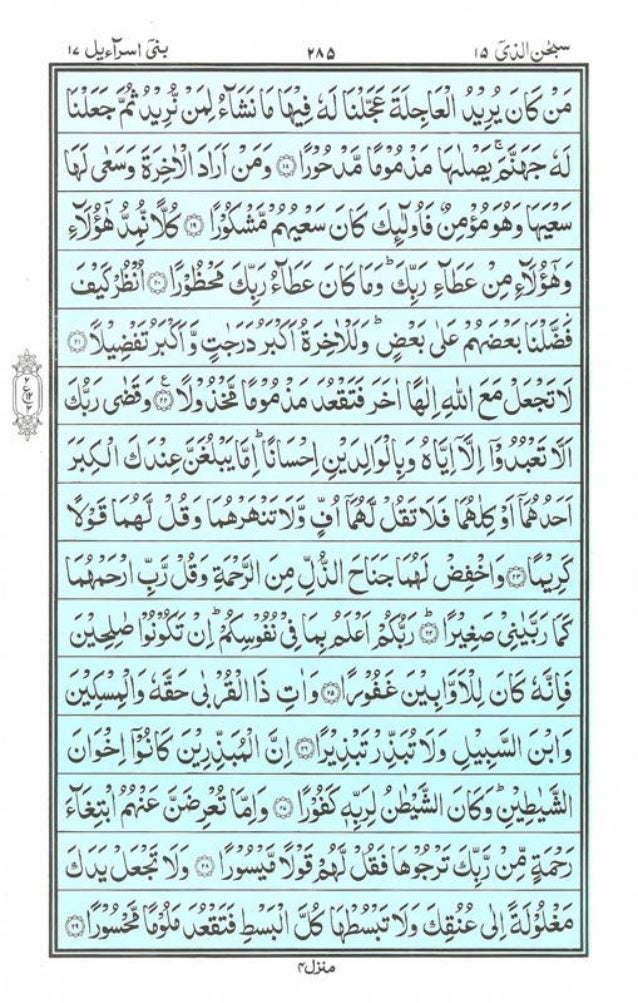 سبحٰن الذیٓ ۱۵ ۲۸۵ بنیٓ اسرآءیل ۱۷
مَنْ كَانَ يُرِيْدُ الْعَاجِلَةَ عَجَّلْنَا لَهٗ فِيْهَا مَا نَشَآءُ لِمَنْ نُّرِيْدُ ثُمَّ جَعَلْنَا
لَهٗ جَهَنَّمَ ۚ يَصْلٰىهَا مَذْمُوْمًا مَّدْحُوْرًا ۝۱۸ وَمَنْ اَرَادَ الْاٰخِرَةَ وَسَعٰى لَهَا
سَعْيَهَا وَهُوَ مُؤْمِنٌ فَاُولٰٓئِكَ كَانَ سَعْيُهُمْ مَّشْكُوْرًا ۝۱۹ كُلًّا نُّمِدُّ هٰٓؤُلَآءِ
وَهٰٓؤُلَآءِ مِنْ عَطَآءِ رَبِّكَ ؕ وَمَا كَانَ عَطَآءُ رَبِّكَ مَحْظُوْرًا ۝۲۰ اُنْظُرْ كَيْفَ
فَضَّلْنَا بَعْضَهُمْ عَلٰى بَعْضٍ ؕ وَلَلْاٰخِرَةُ اَكْبَرُ دَرَجٰتٍ وَّاَكْبَرُ تَفْضِيْلًا ۝۲۱
لَا تَجْعَلْ مَعَ اللّٰهِ اِلٰهًا اٰخَرَ فَتَقْعُدَ مَذْمُوْمًا مَّخْذُوْلًا ۝۲۲ ع وَقَضٰى رَبُّكَ
۲
ع ۱۲
۲
اَلَّا تَعْبُدُوْٓا اِلَّآ اِيَّاهُ وَبِالْوَالِدَيْنِ اِحْسَانًا ؕ اِمَّا يَبْلُغَنَّ عِنْدَكَ الْكِبَرَ
اَحَدُهُمَآ اَوْ كِلٰهُمَا فَلَا تَقُلْ لَّهُمَآ اُفٍّ وَّلَا تَنْهَرْهُمَا وَقُلْ لَّهُمَا قَوْلًا
كَرِيْمًا ۝۲۳ وَاخْفِضْ لَهُمَا جَنَاحَ الذُّلِّ مِنَ الرَّحْمَةِ وَقُلْ رَّبِّ ارْحَمْهُمَا
كَمَا رَبَّيٰنِيْ صَغِيْرًا ؕ ۝۲۴ رَبُّكُمْ اَعْلَمُ بِمَا فِيْ نُفُوْسِكُمْ ؕ اِنْ تَكُوْنُوْا صٰلِحِيْنَ
فَاِنَّهٗ كَانَ لِلْاَوَّابِيْنَ غَفُوْرًا ۝۲۵ وَاٰتِ ذَا الْقُرْبٰى حَقَّهٗ وَالْمِسْكِيْنَ
وَابْنَ السَّبِيْلِ وَلَا تُبَذِّرْ تَبْذِيْرًا ۝۲۶ اِنَّ الْمُبَذِّرِيْنَ كَانُوْٓا اِخْوَانَ
الشَّيٰطِيْنِ ؕ وَكَانَ الشَّيْطٰنُ لِرَبِّهٖ كَفُوْرًا ۝۲۷ وَاِمَّا تُعْرِضَنَّ عَنْهُمُ ابْتِغَآءَ
رَحْمَةٍ مِّنْ رَّبِّكَ تَرْجُوْهَا فَقُلْ لَّهُمْ قَوْلًا مَّيْسُوْرًا ۝۲۸ وَلَا تَجْعَلْ يَدَكَ
مَغْلُوْلَةً اِلٰى عُنُقِكَ وَلَا تَبْسُطْهَا كُلَّ الْبَسْطِ فَتَقْعُدَ مَلُوْمًا مَّحْسُوْرًا ۝۲۹
منزل ۴